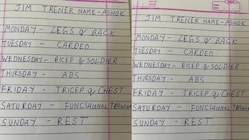 JIM TRENER NAME-ASHOK
MONDAY - LEGS & BACK
TUESDAY - CARDEO
WEDNESDAY - BICEP & SOLDIER
THURSDAY - ABS
FRIDAY - TRICEP & CHEST
SATURDAY - FUNCSHNAL
SUNDAY - REST
JIM TRENER NAME-ASHOK
MONDAY - LEGS & BACK
TUESDAY - CARDEO
WEDNESDAY - BICEP & SOLDIER
THURSDAY - ABS
FRIDAY - TRICEP & CHEST
SATURDAY - FUNCSHNAL
SUNDAY - REST